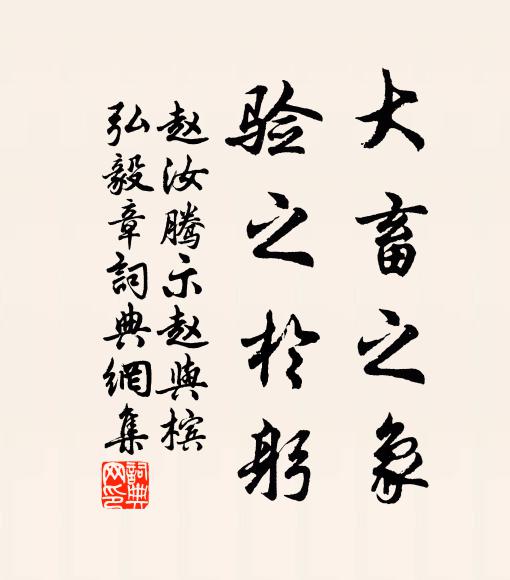 大畜之象
验之於躬
赵汝腾示赵与槟
弘毅章詞典網集
詞典网印